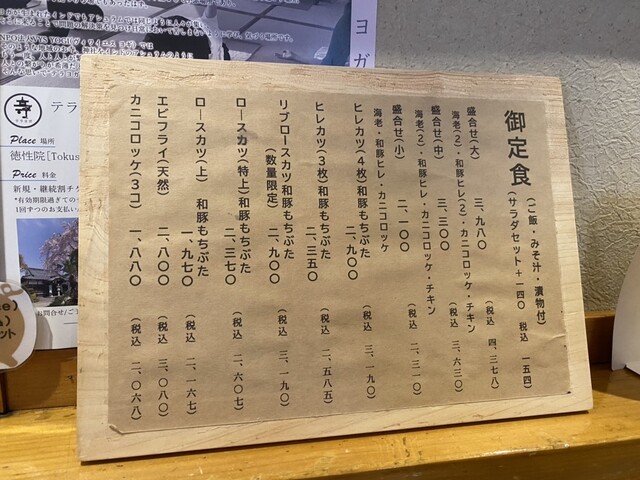 御定食
(ご飯・みそ汁・漬物付)
(サラダセット+一四〇 税込 一五四)
盛合せ(大) 三、九八〇 (税込 四、三七八)
海老(2)・和豚ヒレ(2)・カニコロッケ・チキン
盛合せ(中) 三、三〇〇 (税込 三、六三〇)
海老(2)・和豚ヒレ・カニコロッケ・チキン
盛合せ(小) 二、一〇〇 (税込 二、三一〇)
海老・和豚ヒレ・カニコロッケ
ヒレカツ(4枚)和豚もちぶた 二、九〇〇 (税込 三、一九〇)
ヒレカツ(3枚)和豚もちぶた 二、三五〇 (税込 二、五八五)
リブロースカツ和豚もちぶた
(数量限定) 二、九〇〇 (税込 三、一九〇)
ロースカツ(特上)和豚もちぶた
二、三七〇 (税込 二、六〇七)
ロースカツ(上) 和豚もちぶた
一、九七〇 (税込 二、一六七)
エビフライ(天然) 二、八〇〇 (税込 三、〇八〇)
カニコロッケ(3コ) 一、八八〇 (税込 二、〇六八)
ヨガ
寺
テラ
Place 場所
徳性院[Tokus
Price 料金
新規・継続割チケ
*有効期限過ぎての
1回ずつのお支払い
お問合せ/ご
ット